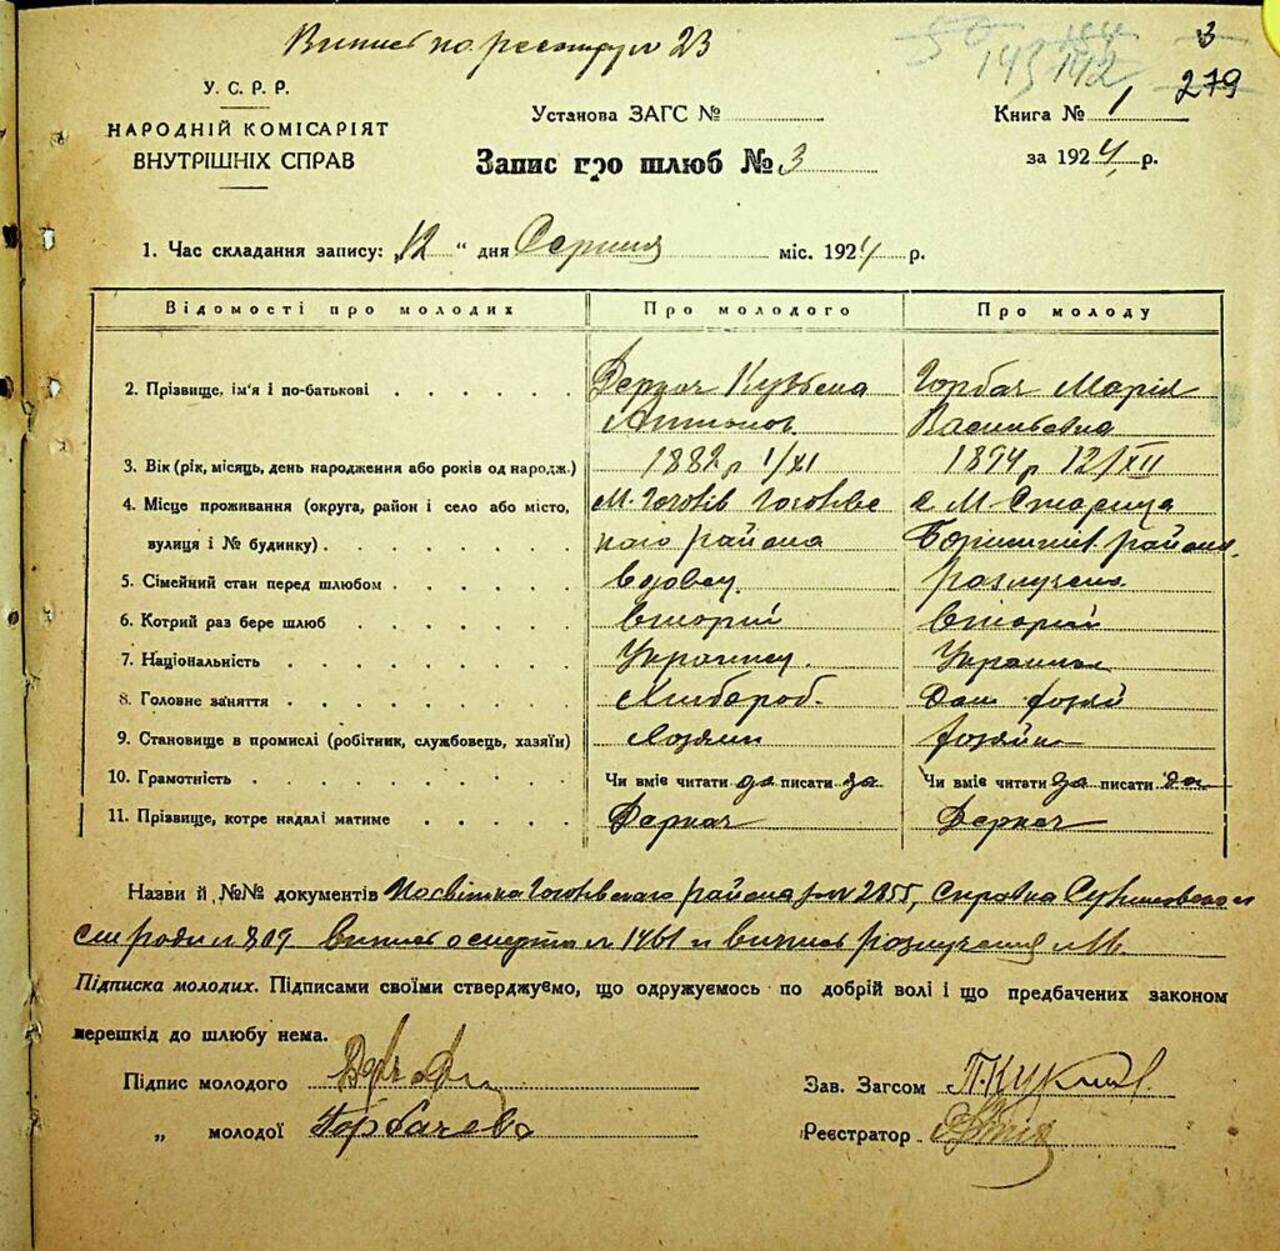 Випис по реестру № 23
3
279
У. С. Р. Р.
НАРОДНІЙ КОМІСАРІЯТ
ВНУТРІШНІХ СПРАВ
Установа ЗАГС №
Запис про шлюб № 3
Книга № 1
за 1924 р.
1. Час складання запису: „12" дня Серпня міс. 1924 р.
Відомості про молодих Про молодого Про молоду
2. Прізвище, ім'я і по-батькові Деркач Кузьма Горбач Марія
Антонов Васильевна
3. Вік (рік, місяць, день народження або років од народж.) 1882 р 1/XI 1894 р 12/XII
4. Місце проживання (округа, район і село або місто, М. Гоголів Гоголівс с М-Стариця
вулиця і № будинку) кого района Бориспіл. района.
5. Сімейний стан перед шлюбом вдовец розлучено
6. Котрий раз бере шлюб вторий вторий
7. Національність Украинец. Украинка
8. Головне заняття Хлібороб. Дом хозяй
9. Становище в промислі (робітник, службовець, хазяїн) Хозяин хозяйка
10. Грамотність Чи вміє читати да писати да Чи вміє читати да писати да
11. Прізвище, котре надалі матиме Деркач Деркач
Назви й №№ документів Посвітка Гоголівского района за № 2855, справка
№ 809 випис о смерти № 1461 и випис розлучения №
Підписка молодих. Підписами своїми стверджуємо, що одружуємось по добрій волі і що предбачених законом
перешкід до шлюбу нема.
Підпис молодого Зав. Загсом
„ молодої Горбачева Реєстратор